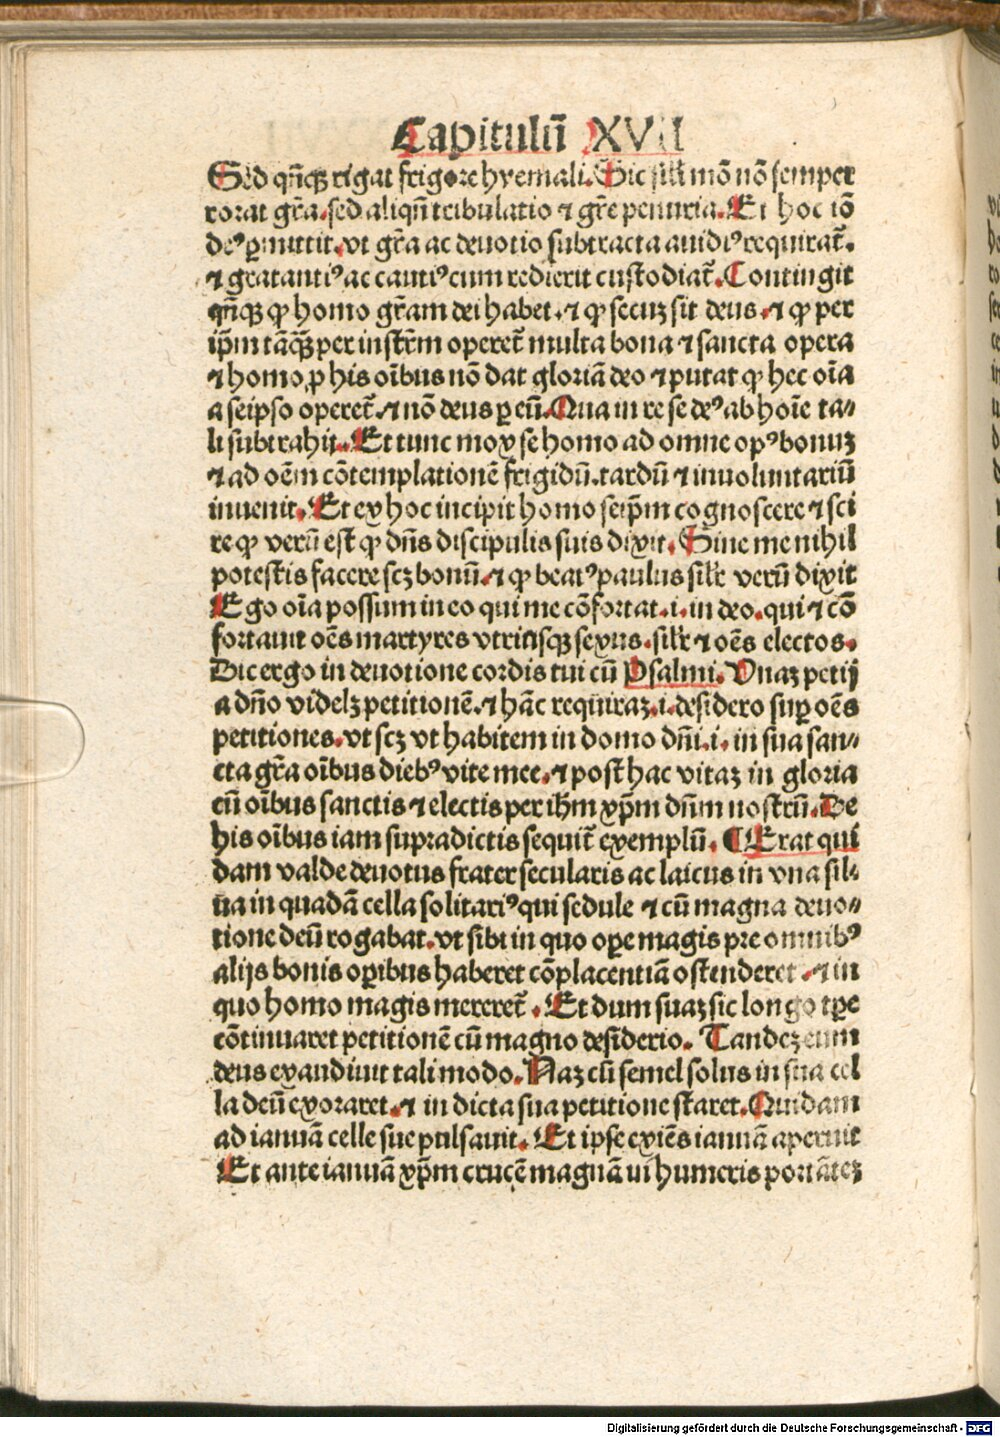 Capitulū XVII
Sed qn̄qꝫ rigat frigore hyemali. Sic sil̓r mō nō semper
rorat gr̄a. sed aliqn̄ tribulatio ⁊ gr̄e penuria. Et hoc iō
deꝰ ꝑmittit. vt gr̄a ac deuotio subtracta auidiꝰ requirat᷑.
⁊ gratantiꝰ ac cautiꝰ cum redierit custodiat᷑. Contingit
qn̄qꝫ ꝙ homo gr̄am dei habet. ⁊ ꝙ secuꝫ sit deus. ⁊ ꝙ per
ip̄m tāqꝫ per instr̄m operet᷑ multa bona ⁊ sancta opera
⁊ homo ꝓ his oībus nō dat gloriā deo ⁊ putat ꝙ hec oīa
a seipso operet᷑. ⁊ nō deus ꝑ eū. Qua in re se deꝰ ab hoīe ta⸗
li subtrahit. Et tunc mox se homo ad omne opꝰ bonuꝫ
⁊ ad oēm cōtemplationē frigidū. tardū ⁊ inuoluntariū
inuenit. Et ex hoc incipit homo seip̄m cognoscere ⁊ sci
re ꝙ verū est ꝙ dn̄s discipulis suis dixit. Sine me nihil
potestis facere scꝫ bonū. ⁊ ꝙ beatꝰ paulus sil̓r verū dixit
Ego oīa possum in eo qui me cōfortat. i. in deo. qui ⁊ cō
fortauit oēs martyres vtriusqꝫ sexus. sil̓r ⁊ oēs electos.
Dic ergo in deuotione cordis tui cū Psalmi. Vnaꝫ petij
a dn̄o videlꝫ petitionē. ⁊ hāc requiraꝫ. i. desidero suꝑ oēs
petitiones. vt scꝫ vt habitem in domo dn̄i. i. in sua san⸗
cta gr̄a oībus diebꝰ vite mee. ⁊ post hac vitaꝫ in gloria
cū oībus sanctis ⁊ electis per ih̄m xp̄m dn̄m nostrū. De
his oībus iam supradictis sequit᷑ exemplū. ¶ Erat qui
dam valde deuotus frater secularis ac laicus in vna sil⸗
ua in quadā cella solitariꝰ qui sedule ⁊ cū magna deuo⸗
tione deū rogabat. vt sibi in quo oꝑe magis pre omnibꝰ
alijs bonis oꝑibus haberet cōplacentiā ostenderet. ⁊ in
quo homo magis mereret᷑. Et dum suaꝫ sic longo tp̄e
cōtinuaret petitionē cū magno desiderio. Tandeꝫ eum
deus exandiuit tali modo. Naꝫ cū semel solus in sua cel
la deū exoraret. ⁊ in dicta sua petitione staret. Quidam
ad ianuā celle sue pulsauit. Et ipse exiēs ianuā aperuit
Et ante ianuā xp̄m crucē magnā ui humeris portāteꝫ
Digitalisierung gefördert durch die Deutsche Forschungsgemeinschaft - DFG